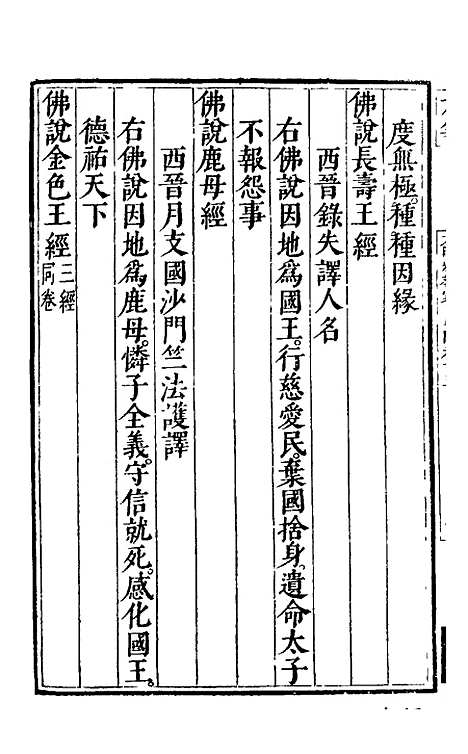 度無極。種種因緣
佛說長壽王經
西晉錄失譯人名
右佛說因地爲國王。行慈愛民。棄國捨身。遺命太子
不報怨事
佛說鹿母經
西晉月支國沙門竺法護譯
右佛說因地爲鹿母。憐子全義。守信就死。感化國王。
德祐天下
佛說金色王經三經同卷